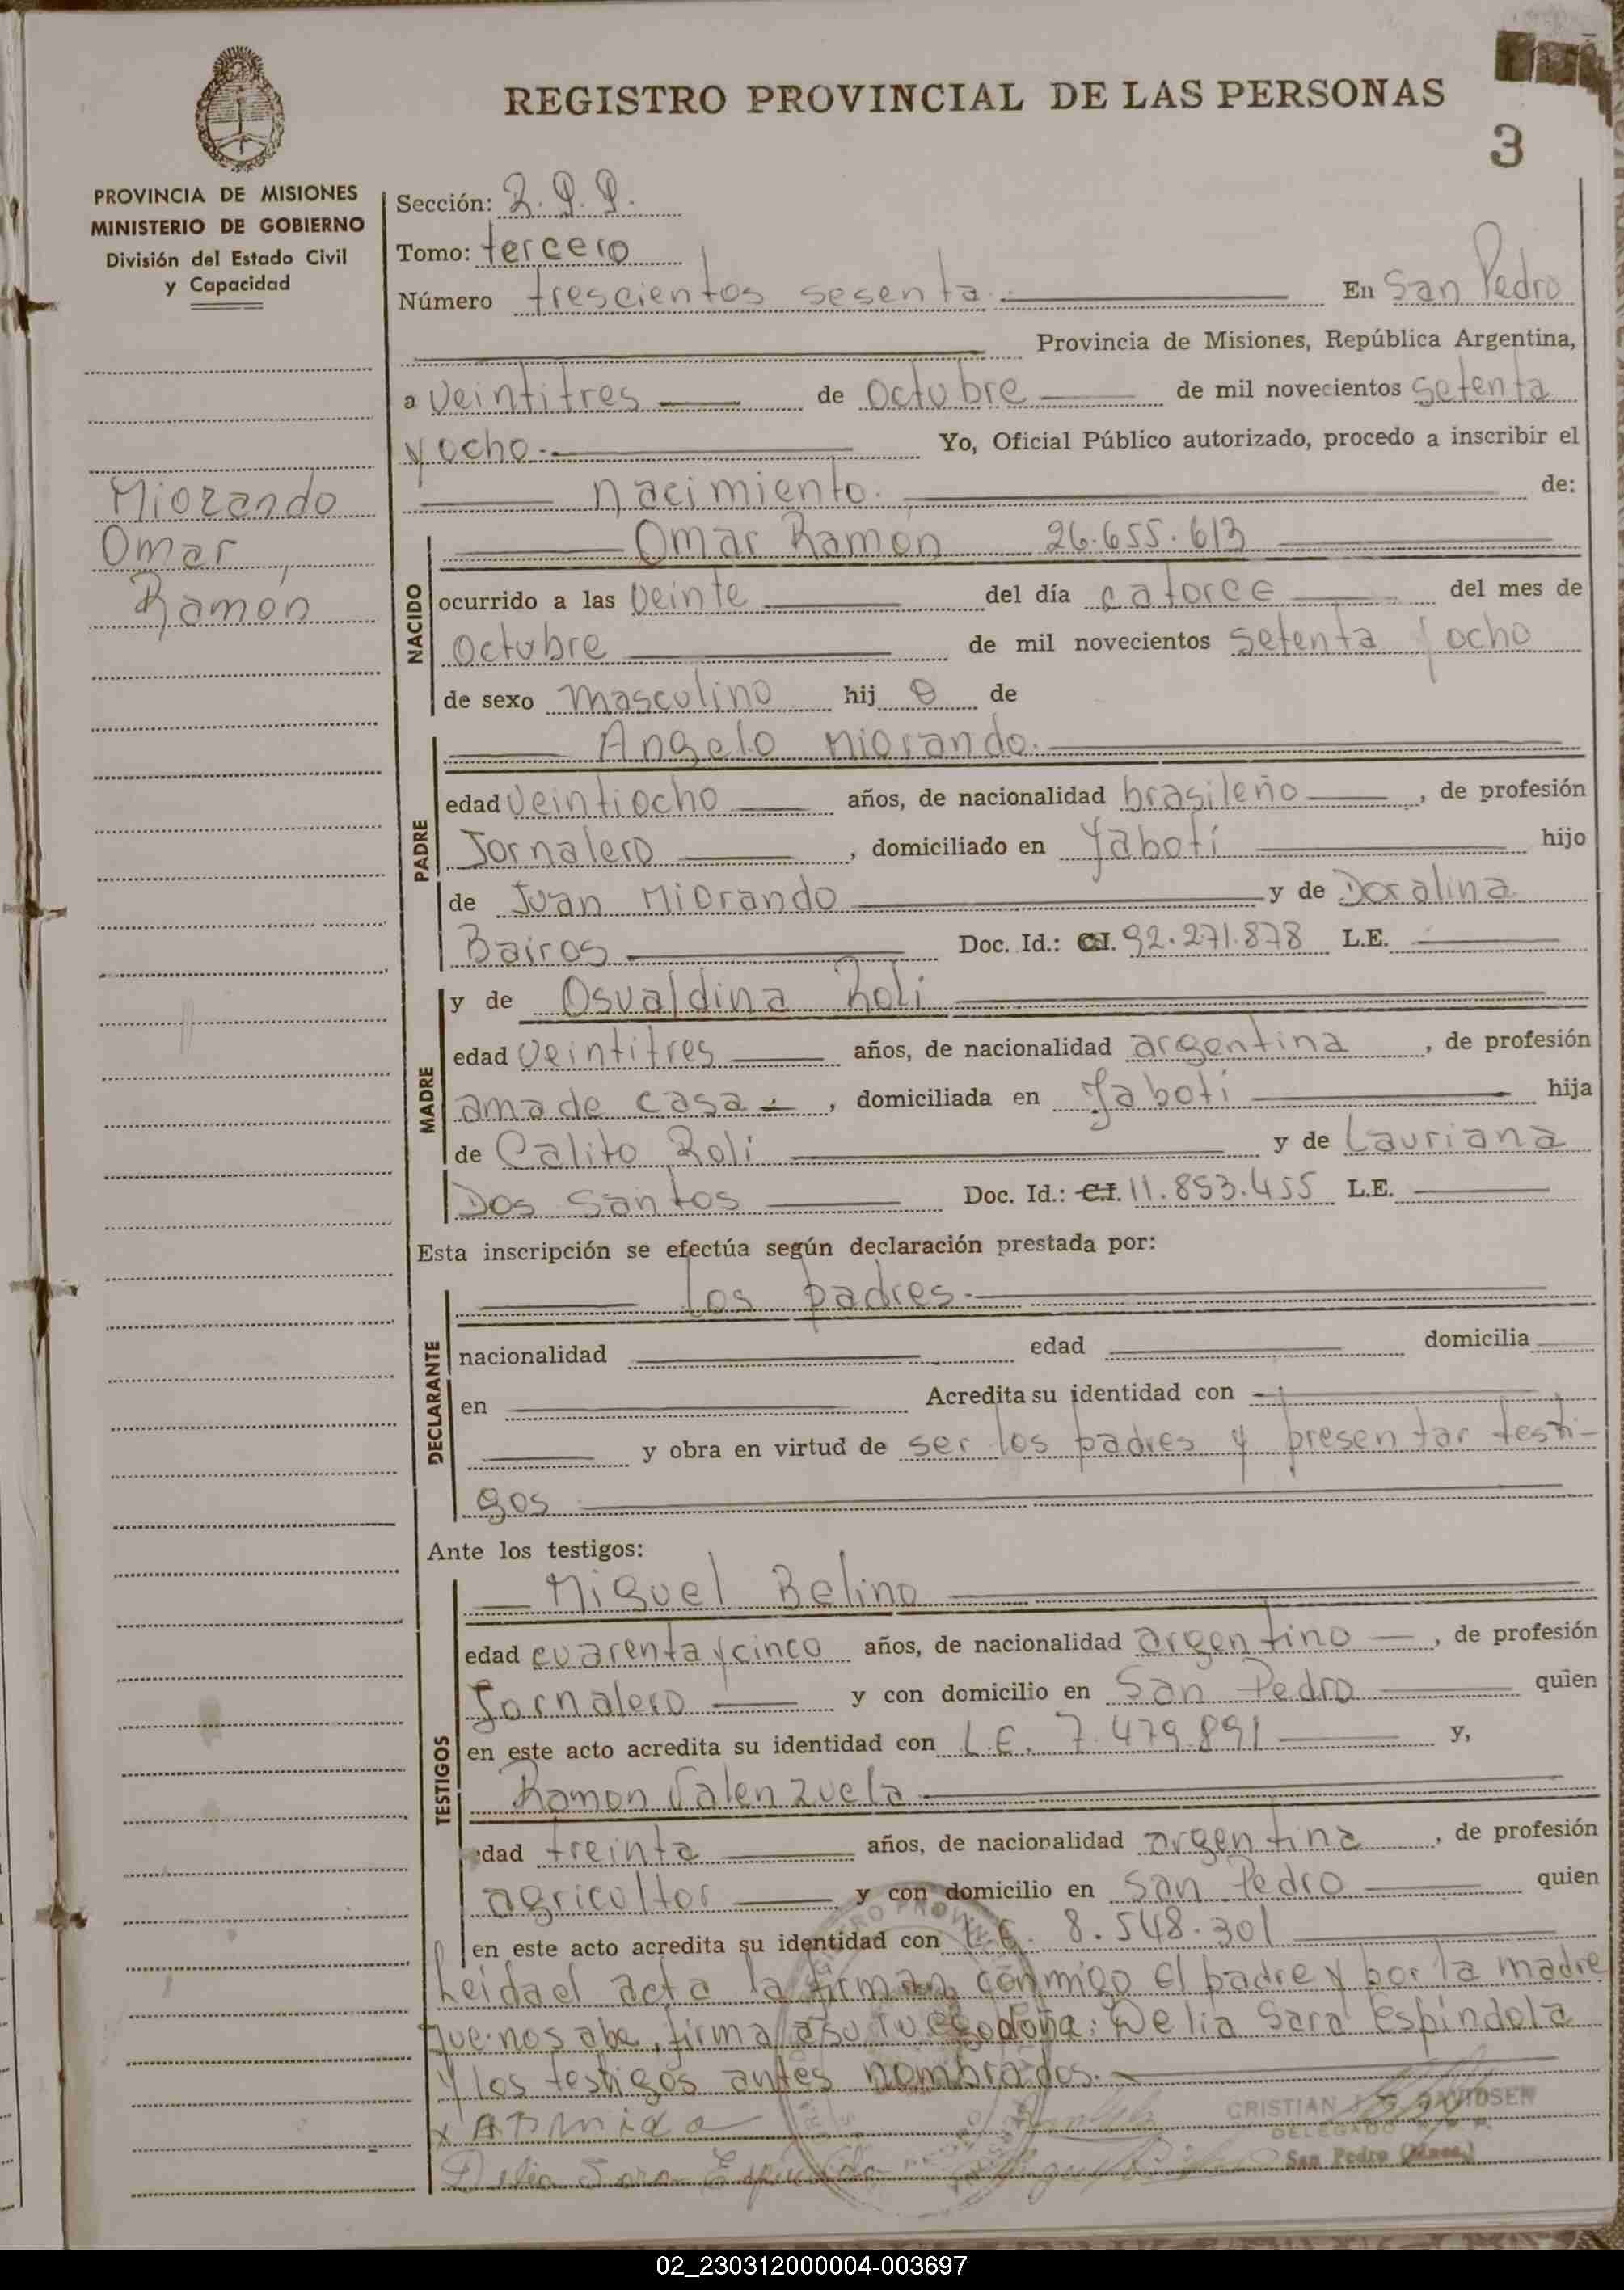 REGISTRO PROVINCIAL DE LAS PERSONAS
3
PROVINCIA DE MISIONES
MINISTERIO DE GOBIERNO
División del Estado Civil
y Capacidad
Miorando
Omar
Ramón
Sección:
Tomo: tercero
Número trescientos sesenta. En San Pedro
Provincia de Misiones, República Argentina,
a veintitres de octubre de mil novecientos setenta
y ocho.- Yo, Oficial Público autorizado, procedo a inscribir el
nacimiento. de:
NACIDO
Omar Ramón 26.655.613
ocurrido a las veinte del día catorce del mes de
octubre de mil novecientos setenta y ocho
de sexo masculino hij o de
PADRE
Angelo Miorando.
edad veintiocho años, de nacionalidad brasileño, de profesión
Jornalero, domiciliado en Yabotí hijo
de Juan Miorando y de Doralina
Bairos Doc. Id.: C.I. 92.271.878 L.E.
MADRE
y de Osvaldina Roli
edad veintitres años, de nacionalidad argentina, de profesión
ama de casa, domiciliada en Yabotí hija
de Calito Roli y de Lauriana
Dos Santos Doc. Id.: C.I. 11.853.455 L.E.
Esta inscripción se efectúa según declaración prestada por:
DECLARANTE
los padres.-
nacionalidad edad domicilia
en Acredita su identidad con
y obra en virtud de ser los padres y presentar testi-
gos
Ante los testigos:
TESTIGOS
Miguel Belino
edad cuarenta y cinco años, de nacionalidad argentino, de profesión
Jornalero y con domicilio en San Pedro quien
en este acto acredita su identidad con L.E. 7.479.891 y,
Ramon Valenzuela
edad treinta años, de nacionalidad argentina, de profesión
agricoltor y con domicilio en San Pedro quien
en este acto acredita su identidad con L.E. 8.548.301
Leida el acta la firman conmigo el padre y por la madre
que no sabe, firma a su ruego doña: Delia Sara Espíndola
y los testigos antes nombrados.-
CRISTIAN DAVIDSEN
DELEGADO
San Pedro (Mnes.)
Delia Sara Espindola
02_230312000004-003697